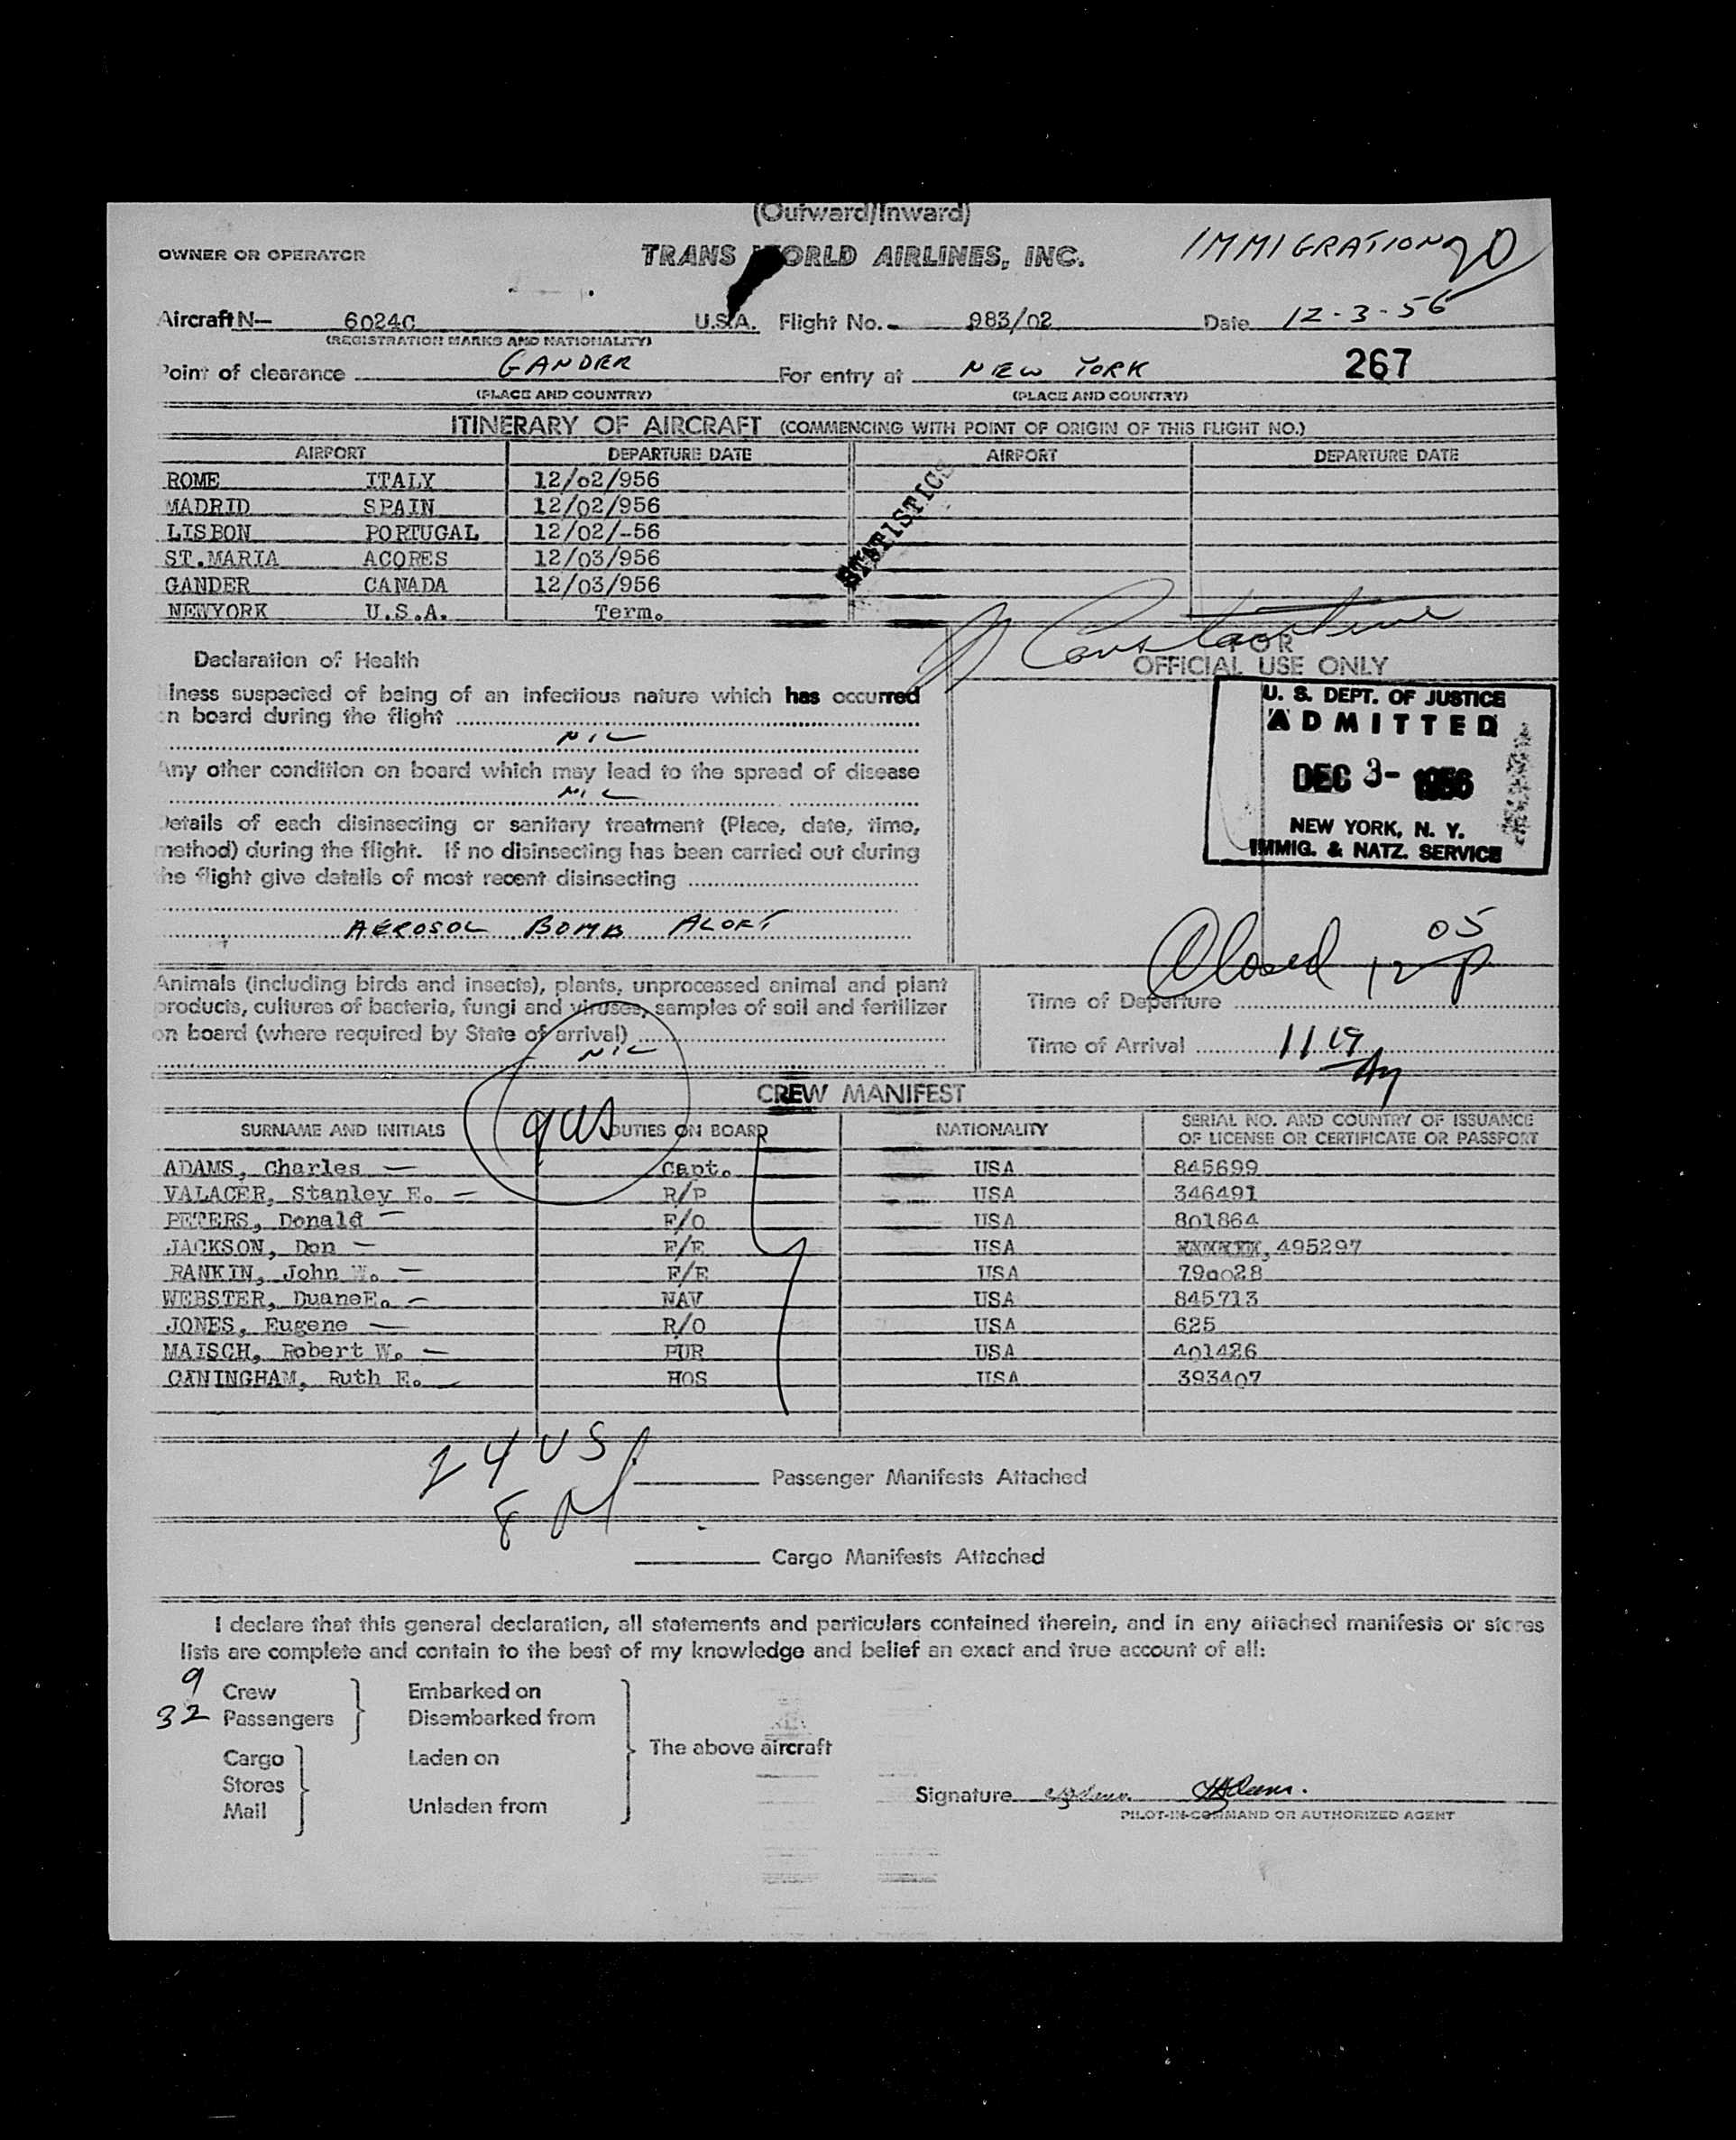 (Outward/Inward)
OWNER OR OPERATOR TRANS WORLD AIRLINES, INC. IMMIGRATION
Aircraft N— 6024C U.S.A. Flight No. 983/02 Date 12-3-56
(REGISTRATION MARKS AND NATIONALITY)
Point of clearance GANDER For entry at NEW YORK 267
(PLACE AND COUNTRY) (PLACE AND COUNTRY)
ITINERARY OF AIRCRAFT (COMMENCING WITH POINT OF ORIGIN OF THIS FLIGHT NO.)
AIRPORT DEPARTURE DATE AIRPORT DEPARTURE DATE
ROME ITALY 12/02/956
MADRID SPAIN 12/02/956
LISBON PORTUGAL 12/02/-56
ST.MARIA ACORES 12/03/956
GANDER CANADA 12/03/956
NEWYORK U.S.A. Term.
STATISTICS
Declaration of Health
FOR
OFFICIAL USE ONLY
lness suspected of being of an infectious nature which has occurred
on board during the flight
NIL
Any other condition on board which may lead to the spread of disease
NIL
Details of each disinsecting or sanitary treatment (Place, date, time,
method) during the flight. If no disinsecting has been carried out during
the flight give details of most recent disinsecting
AEROSOL BOMB ALOFT
U. S. DEPT. OF JUSTICE
ADMITTED
DEC 3- 1956
NEW YORK, N. Y.
IMMIG. & NATZ. SERVICE
Closed 12 05 P
Animals (including birds and insects), plants, unprocessed animal and plant
products, cultures of bacteria, fungi and viruses, samples of soil and fertilizer
on board (where required by State of arrival)
NIL
Time of Departure
Time of Arrival 11 19 AM
CREW MANIFEST
9 US
SURNAME AND INITIALS DUTIES ON BOARD NATIONALITY SERIAL NO. AND COUNTRY OF ISSUANCE
OF LICENSE OR CERTIFICATE OR PASSPORT
ADAMS, Charles — Capt. USA 845699
VALACER, Stanley E. — R/P USA 346491
PETERS, Donald — F/O USA 801864
JACKSON, Don — F/E USA 495297
RANKIN, John W. — F/E USA 790028
WEBSTER, DuaneE. — NAV USA 845713
JONES, Eugene — R/O USA 625
MAISCH, Robert W. — PUR USA 401426
CANINGHAM, Ruth E. — HOS USA 393407
24 US
8 A
Passenger Manifests Attached
Cargo Manifests Attached
I declare that this general declaration, all statements and particulars contained therein, and in any attached manifests or stores
lists are complete and contain to the best of my knowledge and belief an exact and true account of all:
9 Crew Embarked on
32 Passengers Disembarked from
The above aircraft
Cargo Laden on
Stores
Mail Unladen from
Signature
PILOT-IN-COMMAND OR AUTHORIZED AGENT